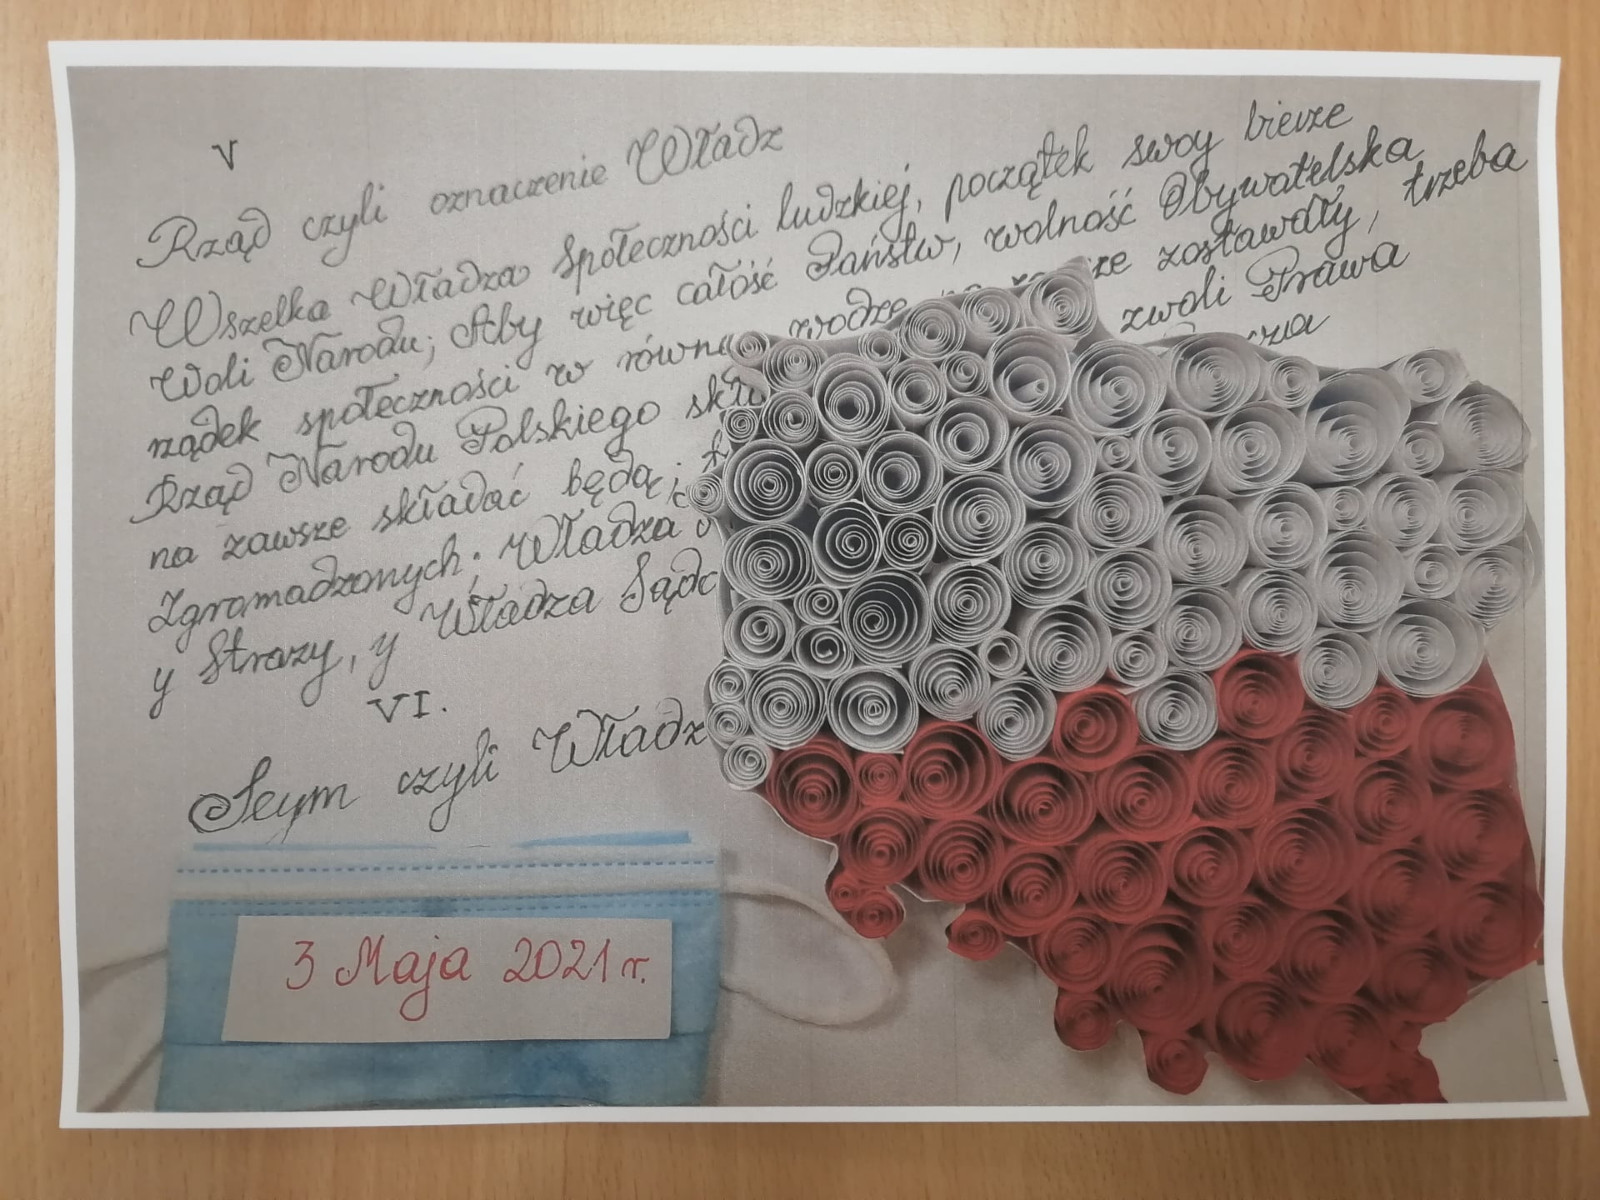 V
Rząd czyli oznaczenie Władz
Wszelka Władza społeczności ludzkiej, początek swoy bierze
Woli Narodu; Aby więc całość Państw, wolność Obywatelska
rządek społeczności w równe wodze na zostawały, trzeba
Rząd Narodu Polskiego zwoli Prawa
na zawsze składać będą;
Zgromadzonych. Władza
y Straży, y Władza
VI.
Seym czyli Władz
3 Maja 2021 r.